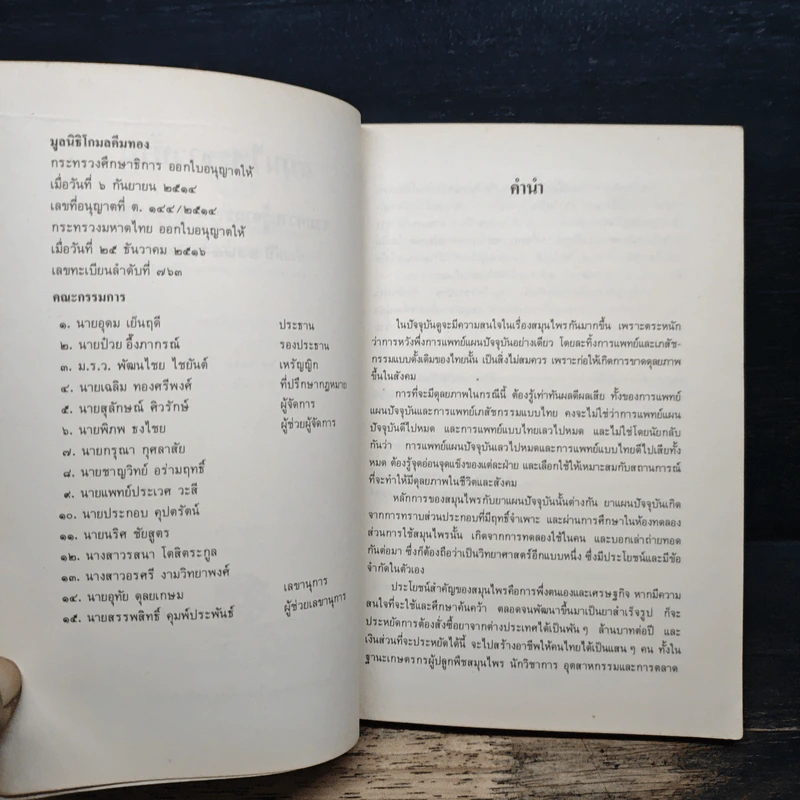 มูลนิธิโกมลคีมทอง
กระทรวงศึกษาธิการ ออกใบอนุญาตให้
เมื่อวันที่ ๖ กันยายน ๒๕๑๔
เลขที่อนุญาตที่ ต. ๑๔๔/๒๕๑๔
กระทรวงมหาดไทย ออกใบอนุญาตให้
เมื่อวันที่ ๒๕ ธันวาคม ๒๕๑๖
เลขทะเบียนลำดับที่ ๗๖๓
คณะกรรมการ
๑. นายอุดม เย็นฤดี ประธาน
๒. นายป๋วย อึ๊งภากรณ์ รองประธาน
๓. ม.ร.ว. พัฒนไชย ไชยันต์ เหรัญญิก
๔. นายเฉลิม ทองศรีพงศ์ ที่ปรึกษากฎหมาย
๕. นายสุลักษณ์ ศิวรักษ์ ผู้จัดการ
๖. นายพิภพ ธงไชย ผู้ช่วยผู้จัดการ
๗. นายกรุณา กุศลาสัย
๘. นายชาญวิทย์ อร่ามฤทธิ์
๙. นายแพทย์ประเวศ วะสี
๑๐. นายประกอบ คุปตรัตน์
๑๑. นายนริศ ชัยสูตร
๑๒. นางสาวรสนา โตสิตระกูล
๑๓. นางสาวอรศรี งามวิทยาพงศ์
๑๔. นายอุทัย ดุลยเกษม เลขานุการ
๑๕. นายสรรพสิทธิ์ คุมพ์ประพันธ์ ผู้ช่วยเลขานุการ
คำนำ
ในปัจจุบันดูจะมีความสนใจในเรื่องสมุนไพรกันมากขึ้น เพราะตระหนัก
ว่าการหวังพึ่งการแพทย์แผนปัจจุบันอย่างเดียว โดยละทิ้งการแพทย์และเภสัช-
กรรมแบบดั้งเดิมของไทยนั้น เป็นสิ่งไม่สมควร เพราะก่อให้เกิดการขาดดุลยภาพ
ขึ้นในสังคม
การที่จะมีดุลยภาพในกรณีนี้ ต้องรู้เท่าทันผลดีผลเสีย ทั้งของการแพทย์
แผนปัจจุบันและการแพทย์เภสัชกรรมแบบไทย คงจะไม่ใช่ว่าการแพทย์แผน
ปัจจุบันดีไปหมด และการแพทย์แบบไทยเลวไปหมด และไม่ใช่โดยนัยกลับ
กันว่า การแพทย์แผนปัจจุบันเลวไปหมดและการแพทย์แบบไทยดีไปเสียทั้ง
หมด ต้องรู้จุดอ่อนจุดแข็งของแต่ละฝ่าย และเลือกใช้ให้เหมาะสมกับสถานการณ์
ที่จะทำให้มีดุลยภาพในชีวิตและสังคม
หลักการของสมุนไพรกับยาแผนปัจจุบันนั้นต่างกัน ยาแผนปัจจุบันเกิด
จากการทราบส่วนประกอบที่มีฤทธิ์จำเพาะ และผ่านการศึกษาในห้องทดลอง
ส่วนการใช้สมุนไพรนั้น เกิดจากการทดลองใช้ในคน และบอกเล่าถ่ายทอด
กันต่อมา ซึ่งก็ต้องถือว่าเป็นวิทยาศาสตร์อีกแบบหนึ่ง ซึ่งมีประโยชน์และมีข้อ
จำกัดในตัวเอง
ประโยชน์สำคัญของสมุนไพรคือการพึ่งตนเองและเศรษฐกิจ หากมีความ
สนใจที่จะใช้และศึกษาค้นคว้า ตลอดจนพัฒนาขึ้นมาเป็นยาสำเร็จรูป ก็จะ
ประหยัดการต้องสั่งซื้อยาจากต่างประเทศได้เป็นพัน ๆ ล้านบาทต่อปี และ
เงินส่วนที่จะประหยัดได้นี้ จะไปสร้างอาชีพให้คนไทยได้เป็นแสน ๆ คน ทั้งใน
ฐานะเกษตรกรผู้ปลูกพืชสมุนไพร นักวิชาการ อุตสาหกรรมและการตลาด